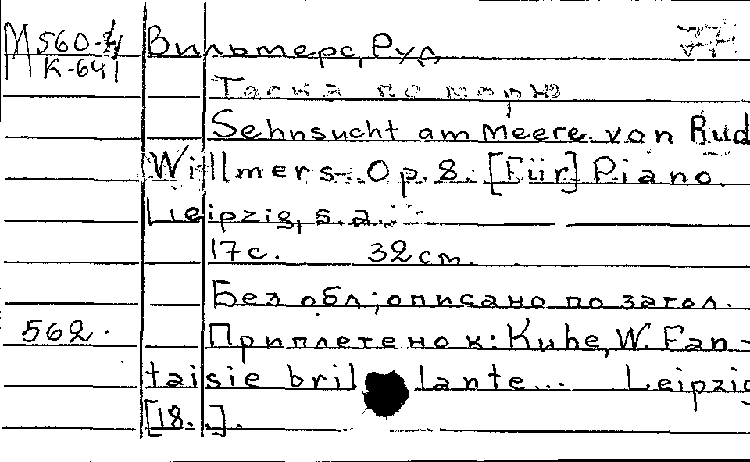 М 560-4 Вильмерс, Руд
К-641
Тоска по морю
Sehnsucht am Meere von Rud
Willmers. Op. 8. [Für] Piano.
Leipzig, s.a.
17 с. 32 см.
Без обл; описано по загол.
562. Приплетено к: Kuhe, W. Fan-
taisie bril lante... Leipzig
[18..].